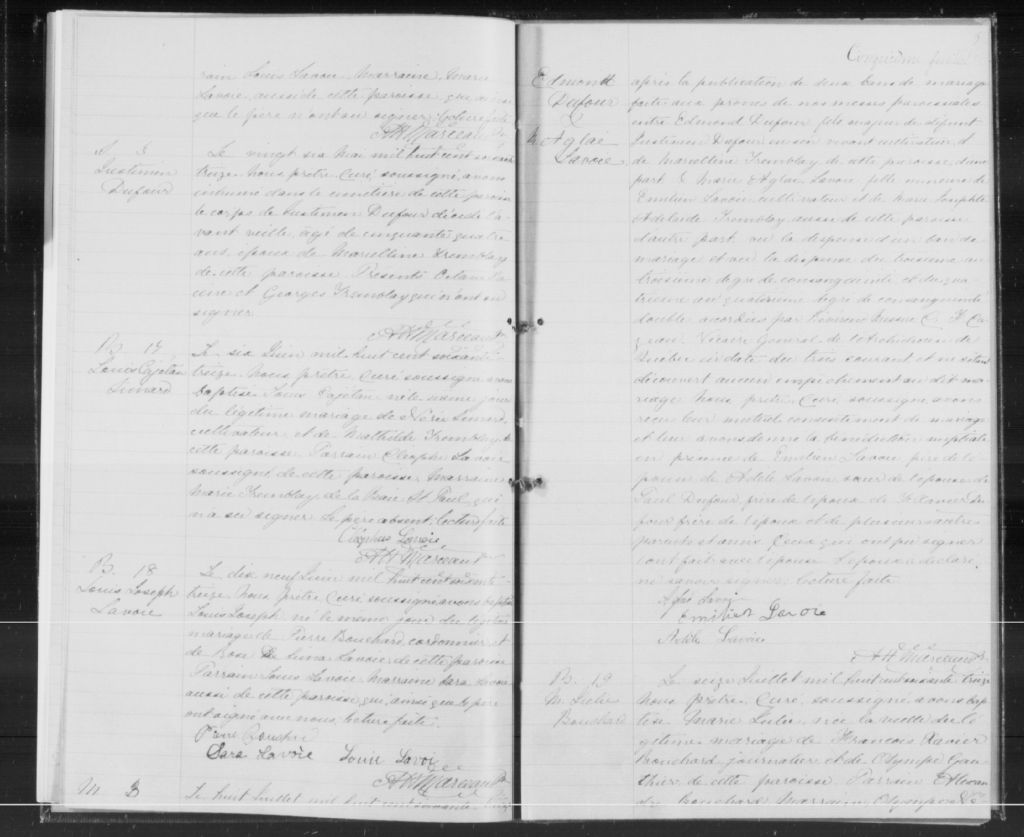 rain Louis Lavoie Marraine Marie
Lavoie aussi de cette paroisse qui ainsi
que le père n'ont su signer. Lecture faite
A H Marceau Ptr
S 3
Justinien
Dufour
Le vingt six Mai mil huit cent soixante
treize Nous prêtre Curé soussigné avons
inhumé dans le cimetière de cette paroisse
le corps de Justinien Dufour décédé l'a-
vant veille, agé de cinquante quatre
ans, époux de Marcelline Tremblay
de cette paroisse. Présents
et Georges Tremblay qui n'ont su
signer.
A H Marceau Ptr
B. 17
Louis Cajetan
Simard
Le six Juin mil huit cent soixante
treize, Nous prêtre Curé soussigné avons
baptisé Louis Cajetan né le même jour
du légitime mariage de Nérée Simard
cultivateur et de Mathilde Tremblay de
cette paroisse Parrain Cléophe Lavoie
soussigné de cette paroisse Marraine
Marie Tremblay de la Baie St Paul qui
n'a su signer le père absent, lecture faite
Cléophus Lavoie
A H Marceau Ptr
B. 18
Louis Joseph
Lavoie
Le dix neuf Juin mil huit cent soixante
treize Nous prêtre Curé soussigné avons baptisé
Louis Joseph, né le même jour du légitime
mariage de Pierre Bouchard cordonnier et
de Rose de Lima Lavoie de cette paroisse
Parrain Louis Lavoie Marraine Sara Lavoie
aussi de cette paroisse qui, ainsi que le père
ont signé avec nous, lecture faite.
Pierre Bouchard
Sara Lavoie Louis Lavoie
A H Marceau Ptr
M
Le huit Juillet mil huit cent soixante treize
Cinquième feuillet
Edmond
Dufour
&
M Aglaé
Lavoie
après la publication de deux bans de mariage
faite aux prônes de nos messes paroissiales
entre Edmond Dufour fils majeur du défunt
Justinien Dufour en son vivant cultivateur et
de Marcelline Tremblay de cette paroisse d'une
part & Marie Aglaé Lavoie fille mineure de
Emilien Lavoie cultivateur et de Marie Josephte
Adelaide Tremblay aussi de cette paroisse
d'autre part, vu la dispense d'un ban de
mariage et vu la dispense du troisième au
troisième degré de consanguinité et du qua-
trième au quatrième degré de consanguinité
double accordées par Révérend Messire C. F Ca-
zeau, Vicaire Général de l'Archidiocèse de
Québec en date du trois courant et ne s'étant
découvert aucun empêchement au dit ma-
riage Nous prêtre Curé soussigné avons
reçu leur mutuel consentement de mariage
et leur avons donné la bénédiction nuptiale
en présence de Emilien Lavoie père de l'é-
pouse de Adèle Lavoie soeur de l'épouse de
Paul Dufour, frère de l'époux de Xavier Du-
four frère de l'époux et de plusieurs autres
parents et amis. Ceux qui ont pu signer
l'ont fait avec l'épouse L'époux a déclaré
ne savoir signer, lecture faite.
Aglaé Lavoie
Emilien Lavoie
Adèle Lavoie
A H Marceau Ptr
B. 19
M Julie
Bouchard
Le seize Juillet mil huit cent soixante treize
Nous prêtre Curé, soussigné avons bap-
tisé Marie Julie née la veille du lé-
gitime mariage de François Xavier
Bouchard journalier et de Olympe Gau-
thier de cette paroisse Parrain Alexan-
dre Bouchard Marraine Olympe